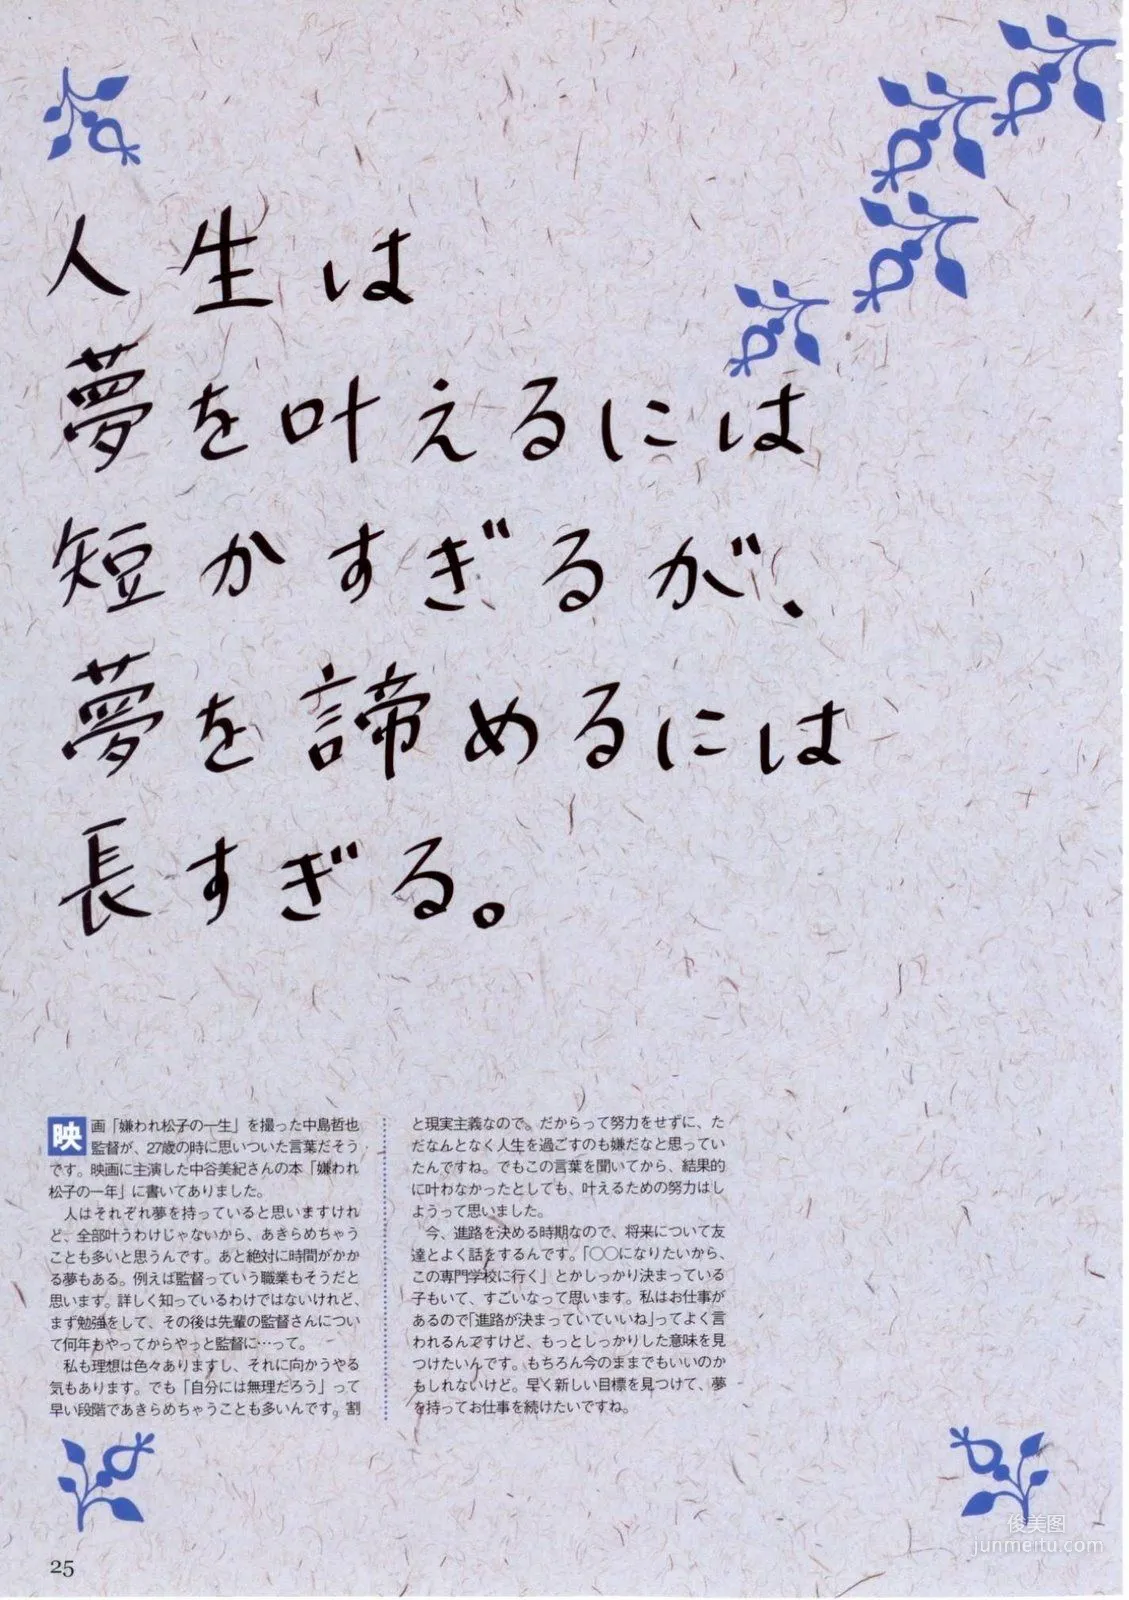 人生は
夢を叶えるには
短かすぎるが、
夢を諦めるには
長すぎる。
映画「嫌われ松子の一生」を撮った中島哲也
監督が、27歳の時に思いついた言葉だそう
です。映画に主演した中谷美紀さんの本「嫌われ
松子の一年」に書いてありました。
人はそれぞれ夢を持っていると思いますけれ
ど、全部叶うわけじゃないから、あきらめちゃう
ことも多いと思うんです。あと絶対に時間がかか
る夢もある。例えば監督っていう職業もそうだと
思います。詳しく知っているわけではないけれど、
まず勉強をして、その後は先輩の監督さんについ
て何年もやってからやっと監督に…って。
私も理想は色々ありますし、それに向かうやる
気もあります。でも「自分には無理だろう」って
早い段階であきらめちゃうことも多いんです。割
と現実主義なので。だからって努力をせずに、た
だなんとなく人生を過ごすのも嫌だなと思ってい
たんですね。でもこの言葉を聞いてから、結果的
に叶わなかったとしても、叶えるための努力はし
ようって思いました。
今、進路を決める時期なので、将来について友
達とよく話をするんです。「〇〇になりたいから、
この専門学校に行く」とかしっかり決まっている
子もいて、すごいなって思います。私はお仕事が
あるので「進路が決まっていていいね」ってよく言
われるんですけど、もっとしっかりした意味を見
つけたいんです。もちろん今のままでもいいのか
もしれないけど。早く新しい目標を見つけて、夢
を持ってお仕事を続けたいですね。
25
俊美图
junmeitu.com